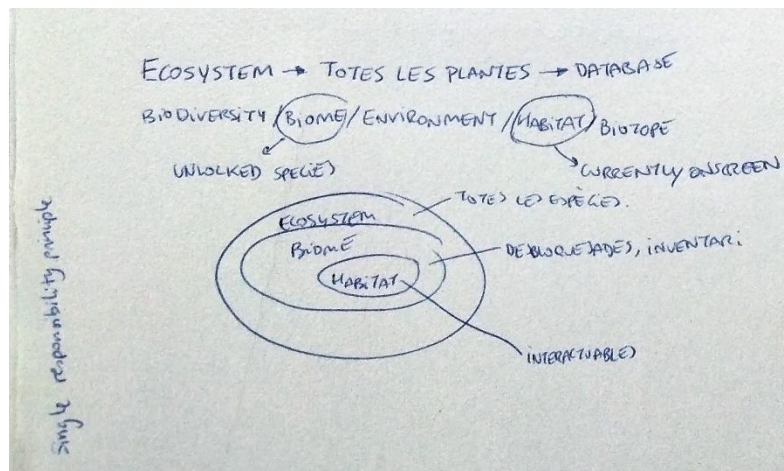 ECOSYSTEM → TOTES LES PLANTES → DATABASE
BIODIVERSITY / BIOME / ENVIRONMENT / HABITAT / BIOTOPE
UNLOCKED SPECIES
CURRENTLY ONSCREEN
TOTES LES ESPÈCIES.
ECOSYSTEM
BIOME
DESBLOQUEJADES, INVENTARI
HABITAT
INTERACTUABLES
Single responsibility principle